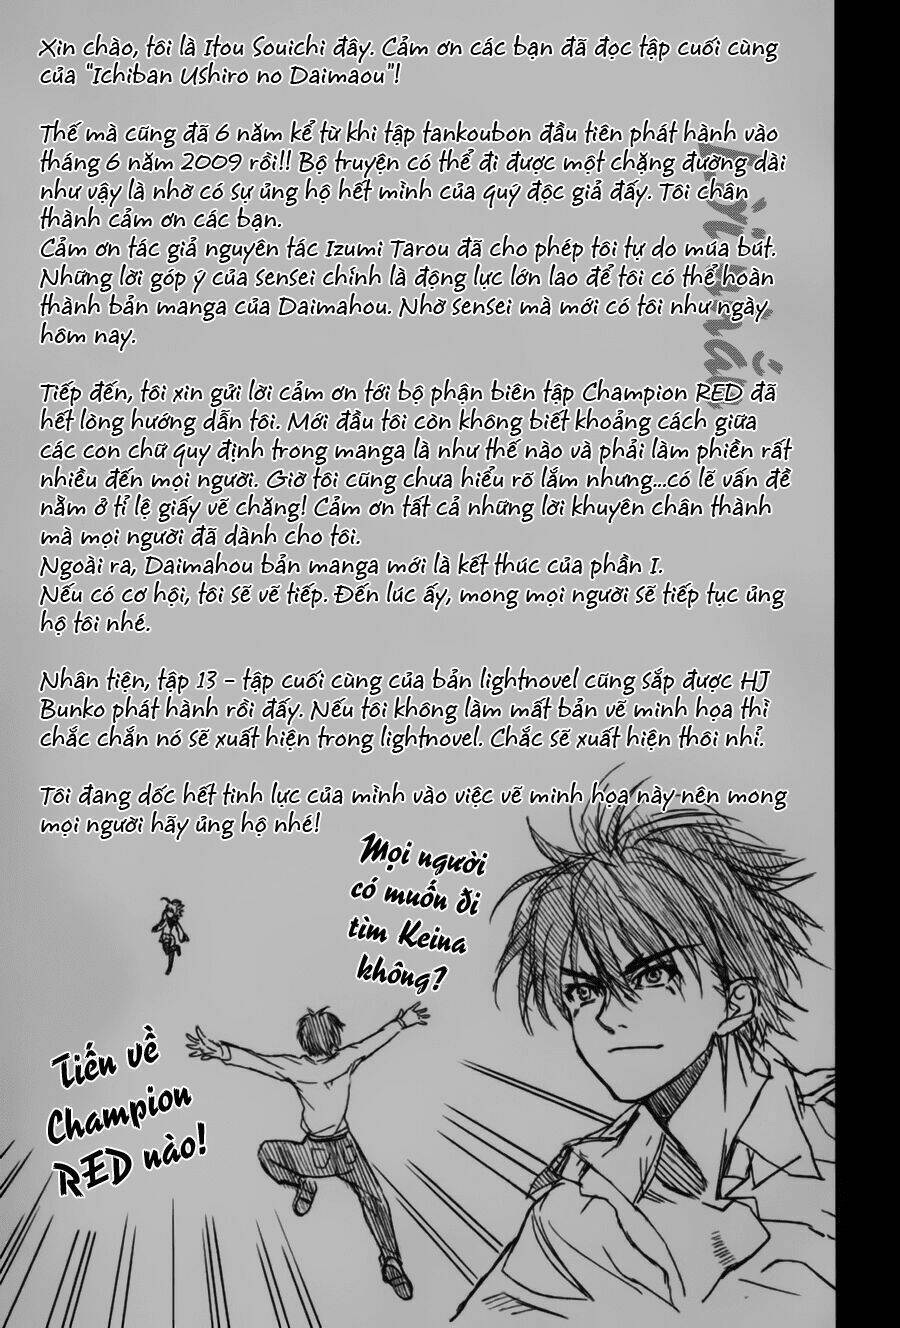 Xin chào, tôi là Itou Souichi đây. Cảm ơn các bạn đã đọc tập cuối cùng
của "Ichiban Ushiro no Daimaou"!
Thế mà cũng đã 6 năm kể từ khi tập tankoubon đầu tiên phát hành vào
tháng 6 năm 2009 rồi!! Bộ truyện có thể đi được một chặng đường dài
như vậy là nhờ có sự ủng hộ hết mình của quý độc giả đấy. Tôi chân
thành cảm ơn các bạn.
Cảm ơn tác giả nguyên tác Izumi Tarou đã cho phép tôi tự do múa bút.
Những lời góp ý của sensei chính là động lực lớn lao để tôi có thể hoàn
thành bản manga của Daimahou. Nhờ sensei mà mới có tôi như ngày
hôm nay.
Tiếp đến, tôi xin gửi lời cảm ơn tới bộ phận biên tập Champion RED đã
hết lòng hướng dẫn tôi. Mới đầu tôi còn không biết khoảng cách giữa
các con chữ quy định trong manga là như thế nào và phải làm phiền rất
nhiều đến mọi người. Giờ tôi cũng chưa hiểu rõ lắm nhưng...có lẽ vấn đề
nằm ở tỉ lệ giấy vẽ chăng! Cảm ơn tất cả những lời khuyên chân thành
mà mọi người đã dành cho tôi.
Ngoài ra, Daimahou bản manga mới là kết thúc của phần I.
Nếu có cơ hội, tôi sẽ vẽ tiếp. Đến lúc ấy, mong mọi người sẽ tiếp tục ủng
hộ tôi nhé.
Nhân tiện, tập 13 - tập cuối cùng của bản lightnovel cũng sắp được HJ
Bunko phát hành rồi đấy. Nếu tôi không làm mất bản vẽ minh họa thì
chắc chắn nó sẽ xuất hiện trong lightnovel. Chắc sẽ xuất hiện thôi nhỉ.
Tôi đang dốc hết tinh lực của mình vào việc vẽ minh họa này nên mong
mọi người hãy ủng hộ nhé!
Mọi người
có muốn đi
tìm Keina
không?
Tiến về
Champion
RED nào!